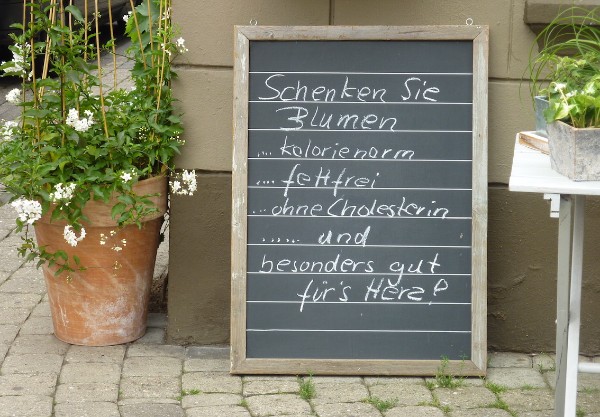 Schenken Sie
Blumen
... kalorienarm
... fettfrei
... ohne Cholesterin
...... und
besonders gut
für's Herz!